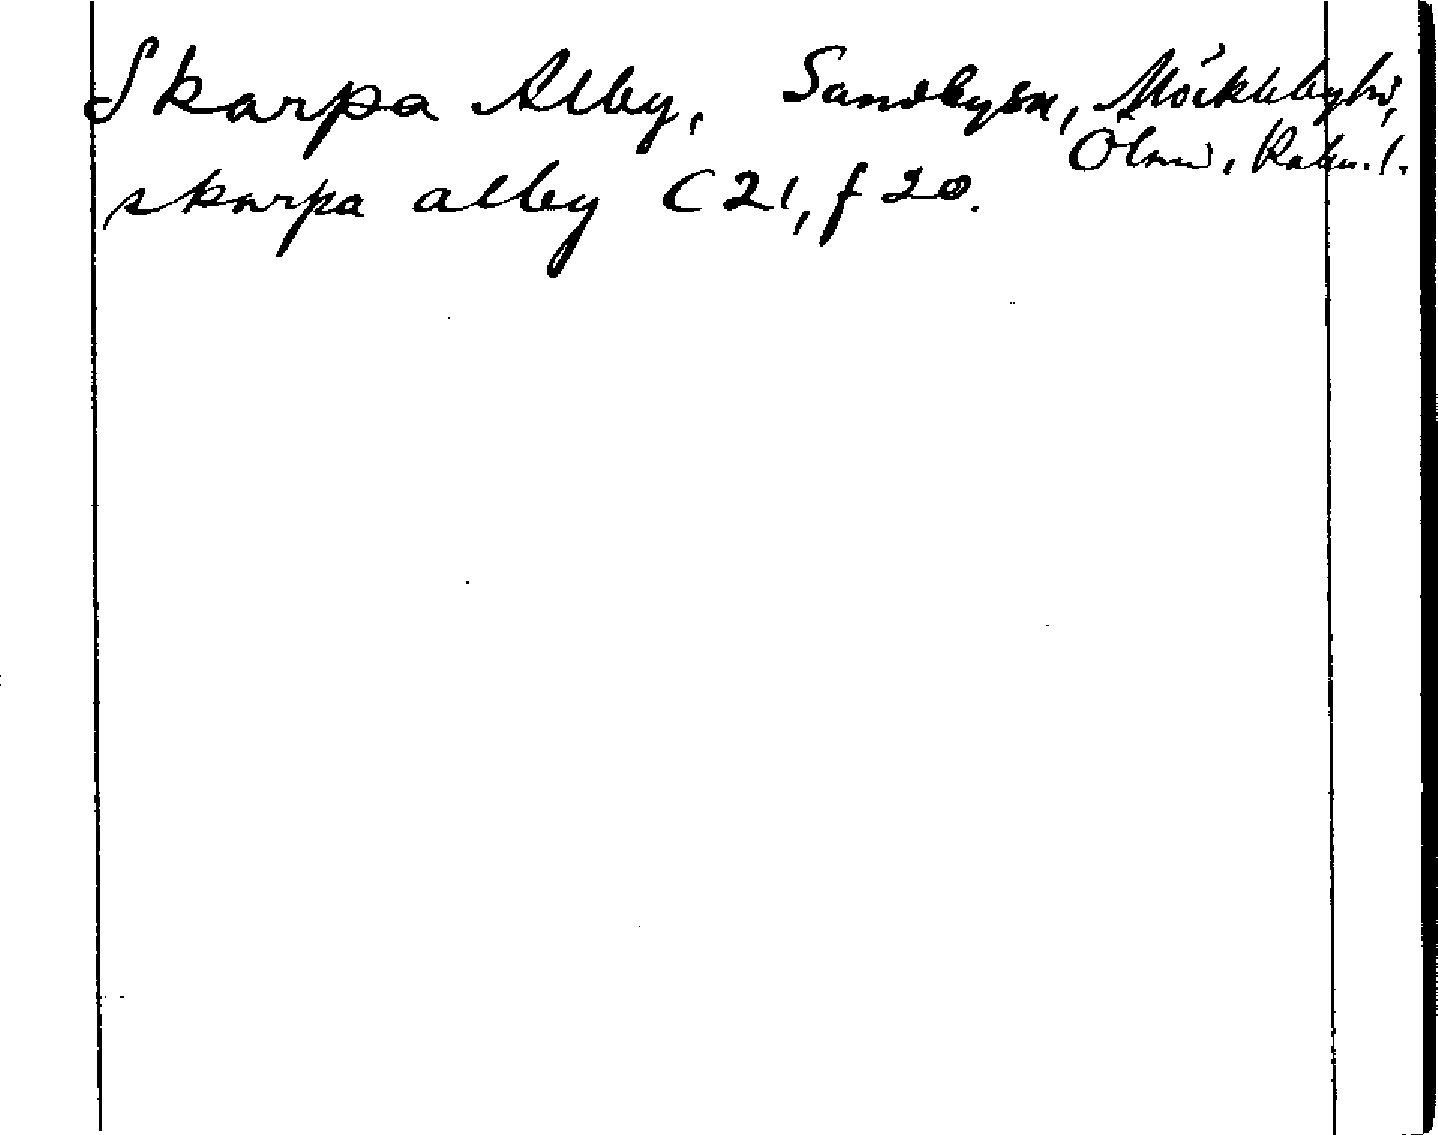 Skarpa Alby, Sandby sn, Möckleby hd,
Öland, Kalm. l.
skarpa alby C 21, f 20.